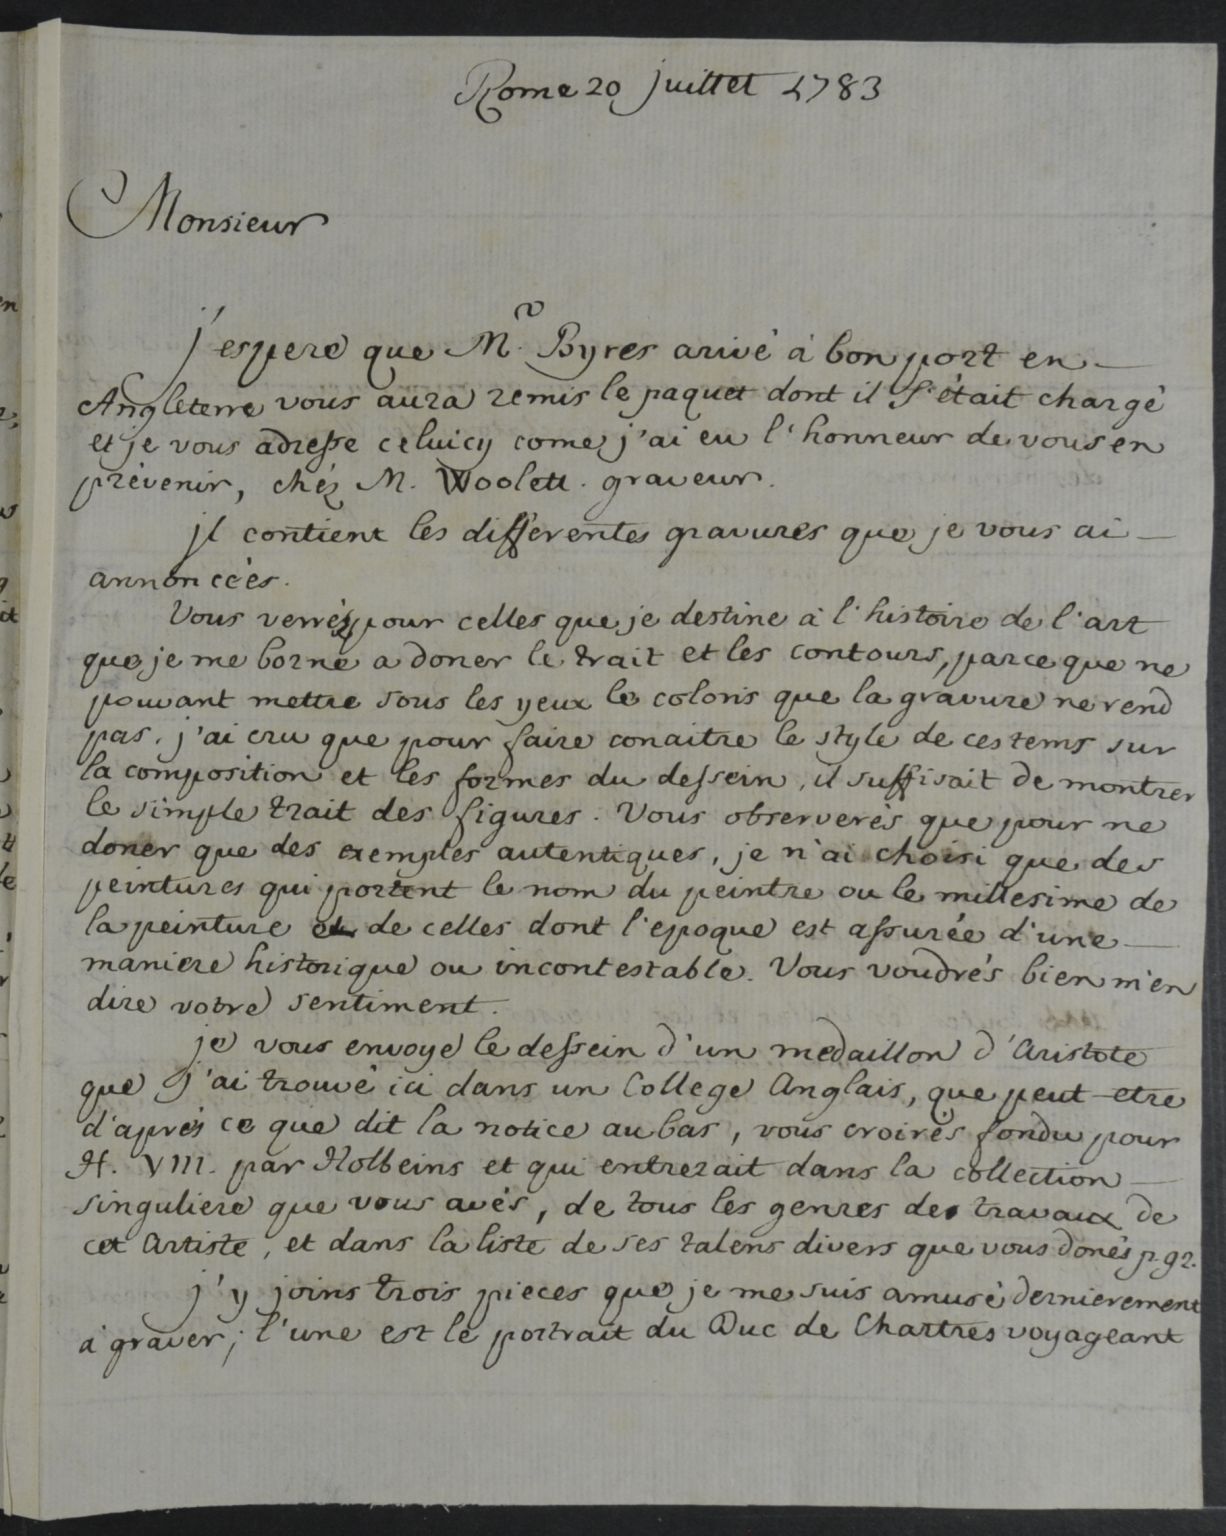 Rome 20 juillet 1783
Monsieur
j'espere que Mr. Byres arivé à bon port en
Angleterre vous aura remis le paquet dont il s'était chargé
et je vous adresse celuicy come j'ai eu l'honneur de vous en
prévenir, chéz M. Woolett. graveur.
jl contient les differentes gravures que je vous ai
annoncées.
Vous verréz pour celles que je destine à l'histoire de l'art
que je me borne a doner le trait et les contours, parce que ne
pouvant mettre sous les yeux le coloris que la gravure ne rend
pas. j'ai cru que pour faire conaitre le style de ces tems sur
la composition et les formes du dessein, il suffisait de montrer
le simple trait des figures. Vous observerés que pour ne
doner que des exemples autentiques, je n'ai choisi que des
peintures qui portent le nom du peintre ou le millesime de
la peinture et de celles dont l'epoque est assurée d'une
maniere historique ou incontestable. Vous voudrés bien m'en
dire votre sentiment.
je vous envoye le dessein d'un medaillon d'Aristote
que j'ai trouvé ici dans un College Anglais, que peut-etre
d'aprés ce que dit la notice au bas, vous croirés fondu pour
H. VIII. par Holbeins et qui entrerait dans la collection
singuliere que vous avés, de tous les genres des travaux de
cet Artiste, et dans la liste de ses talens divers que vous donés p. 92.
j'y joins trois pieces que je me suis amusé dernierement
à graver; l'une est le portrait du Duc de Chartres voyageant